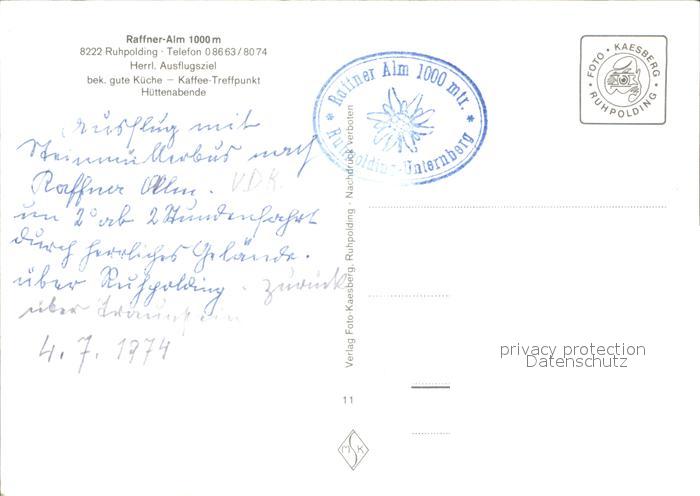 Raffner-Alm 1000 m
8222 Ruhpolding · Telefon 0 86 63 / 80 74
Herrl. Ausflugsziel
bek. gute Küche – Kaffee-Treffpunkt
Hüttenabende
Ausflug mit
Steinmüllerbus nach
Raffner Alm. VDK.
um 2° ab 2 Stundenfahrt
durch herrliches Gelände.
über Ruhpolding. zurück
über Traunstein
4. 7. 1974
* Raffner Alm 1000 mtr. *
Ruhpolding-Unternberg
FOTO · KAESBERG
· RUHPOLDING ·
Verlag Foto Kaesberg, Ruhpolding - Nachdruck verboten
privacy protection
Datenschutz
11
M S K